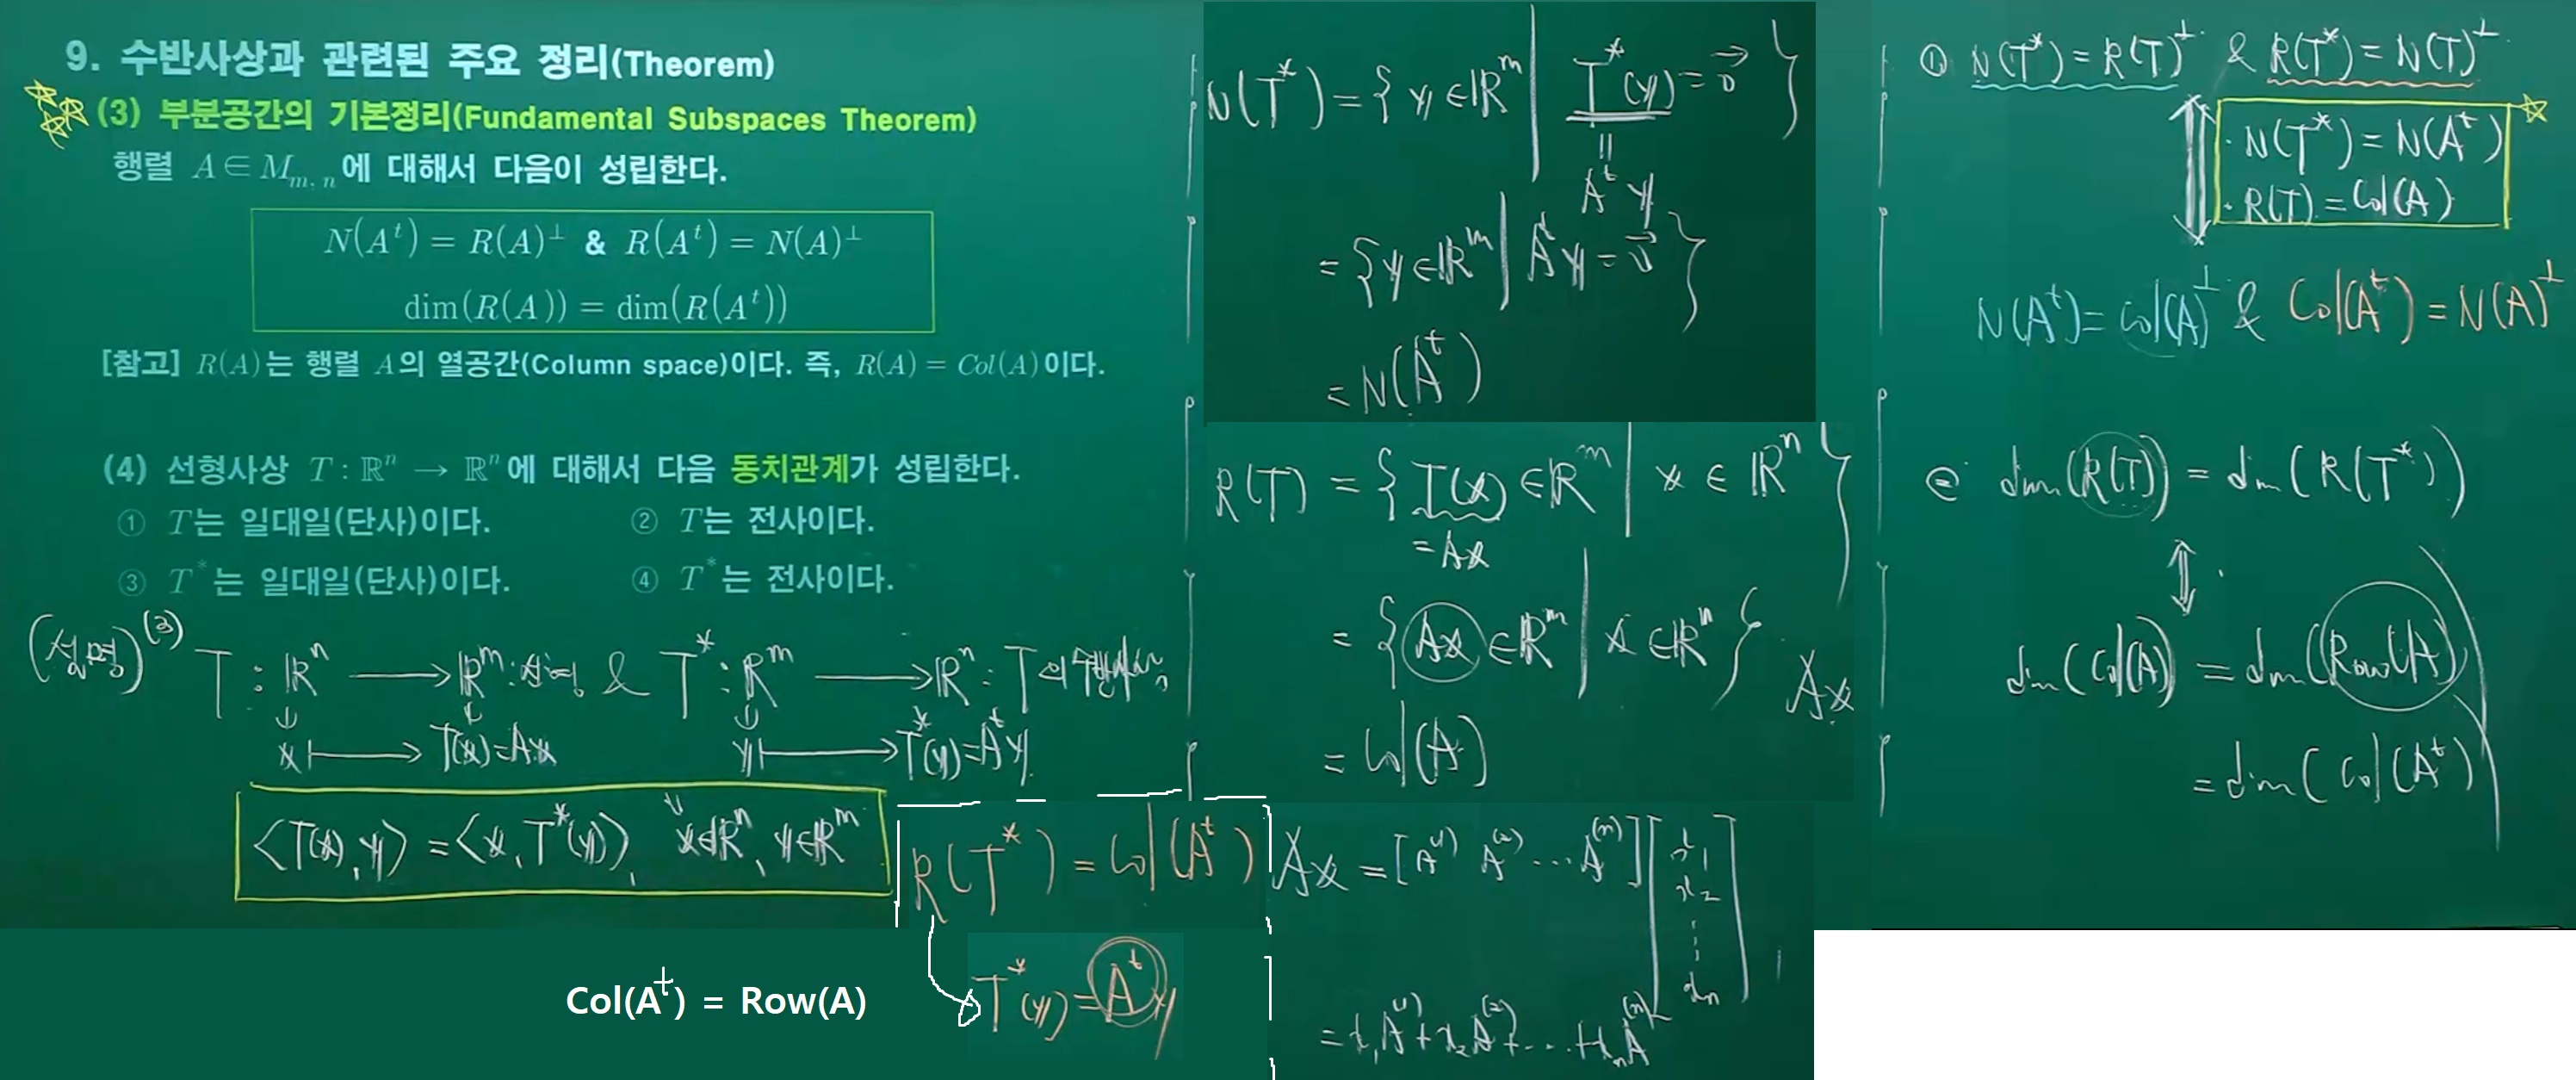 9. 수반사상과 관련된 주요 정리(Theorem)
(3) 부분공간의 기본정리(Fundamental Subspaces Theorem)
행렬 A ∈ M_{m, n}에 대해서 다음이 성립한다.
N(A^t) = R(A)^⊥ & R(A^t) = N(A)^⊥
dim(R(A)) = dim(R(A^t))
[참고] R(A)는 행렬 A의 열공간(Column space)이다. 즉, R(A) = Col(A)이다.
(4) 선형사상 T : ℝ^n → ℝ^n에 대해서 다음 동치관계가 성립한다.
① T는 일대일(단사)이다. ② T는 전사이다.
③ T^*는 일대일(단사)이다. ④ T^*는 전사이다.
(설명) (3) T : ℝ^n → ℝ^m : 선형 & T^* : ℝ^m → ℝ^n : T의 수반사상
x ↦ T(x) = Ax y ↦ T^*(y) = A^t y
<T(x), y> = <x, T^*(y)>, ∀x∈ℝ^n, y∈ℝ^m
Col(A^t) = Row(A)
R(T^*) = Col(A^t)
T^*(y) = A^t y
N(T^*) = { y ∈ ℝ^m | T^*(y) = 0⃗ }
=
A^t y
= { y ∈ ℝ^m | A^t y = 0⃗ }
= N(A^t)
R(T) = { T(x) ∈ ℝ^m | x ∈ ℝ^n }
= Ax
= { Ax ∈ ℝ^m | x ∈ ℝ^n }
Ax
= Col(A)
Ax = [A^(1) A^(2) ... A^(n)] [x_1 x_2 ⋮ x_n]
= x_1 A^(1) + x_2 A^(2) + ... + x_n A^(n)
① N(T^*) = R(T)^⊥ & R(T^*) = N(T)^⊥
⇕ · N(T^*) = N(A^t)
· R(T) = Col(A)
N(A^t) = Col(A)^⊥ & Col(A^t) = N(A)^⊥
② dim(R(T)) = dim(R(T^*))
⇕
dim(Col(A)) = dim(Row(A))
= dim(Col(A^t))